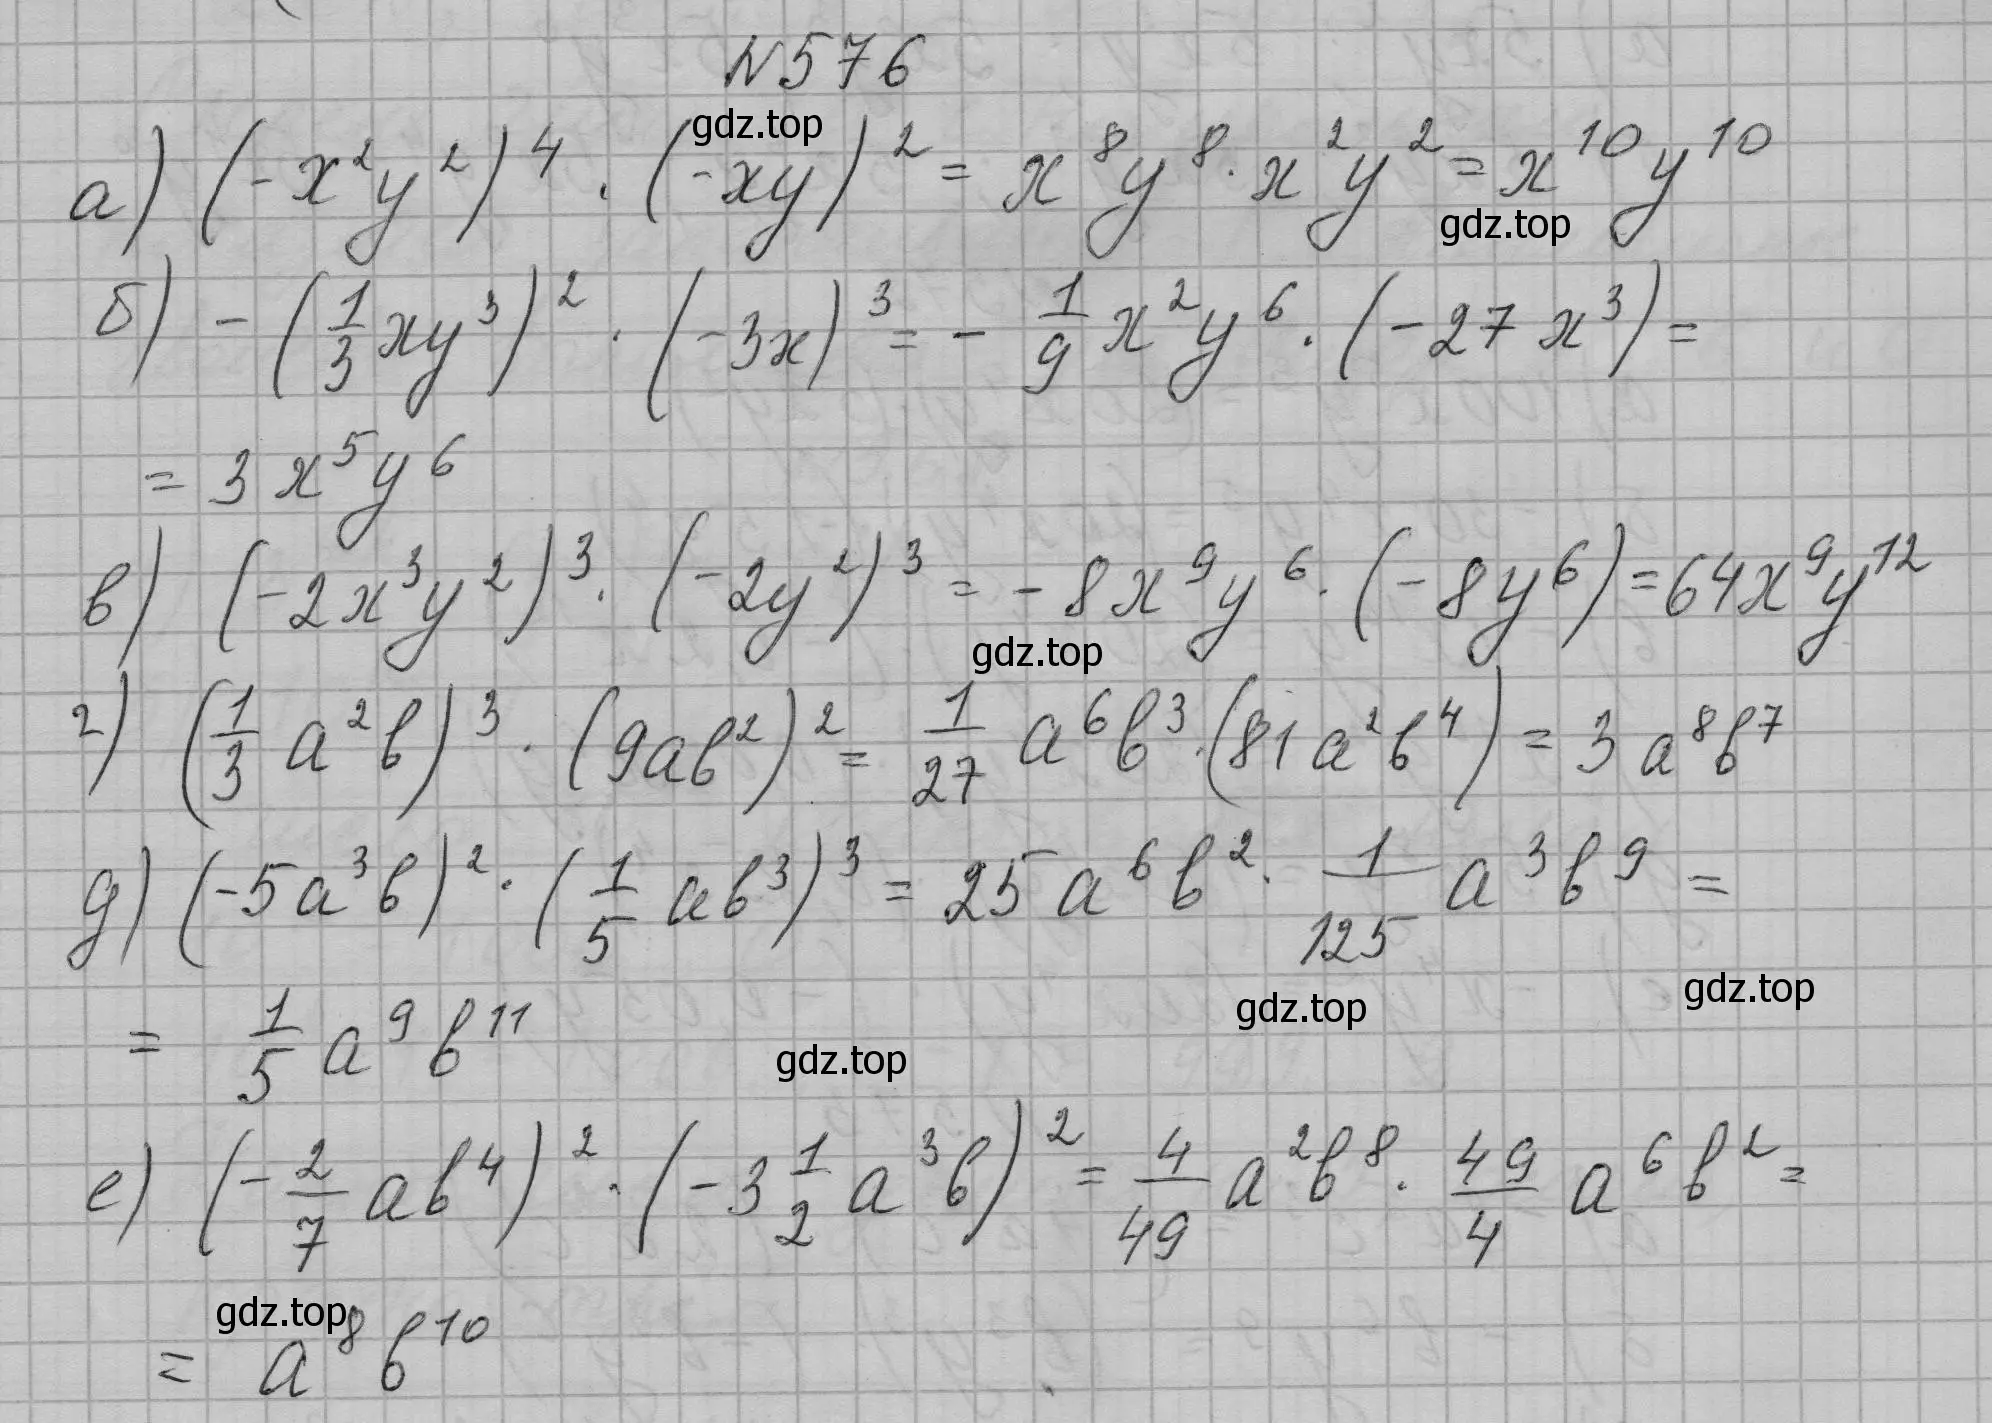 N576
gdz.top
а) (-x²y²)⁴ · (-xy)² = x⁸y⁸ · x²y² = x¹⁰y¹⁰
gdz.top
б) -(1/3 xy³)² · (-3x)³ = -1/9 x²y⁶ · (-27x³) =
= 3x⁵y⁶
в) (-2x³y²)³ · (-2y²)³ = -8x⁹y⁶ · (-8y⁶) = 64x⁹y¹²
gdz.top
г) (1/3 a²b)³ · (9ab²)² = 1/27 a⁶b³ · (81a²b⁴) = 3a⁸b⁷
д) (-5a³b)² · (1/5 ab³)³ = 25a⁶b² · 1/125 a³b⁹ =
gdz.top
gdz.top
= 1/5 a⁹b¹¹
gdz.top
е) (-2/7 ab⁴)² · (-3 1/2 a³b)² = 4/49 a²b⁸ · 49/4 a⁶b² =
gdz.top
= a⁸b¹⁰